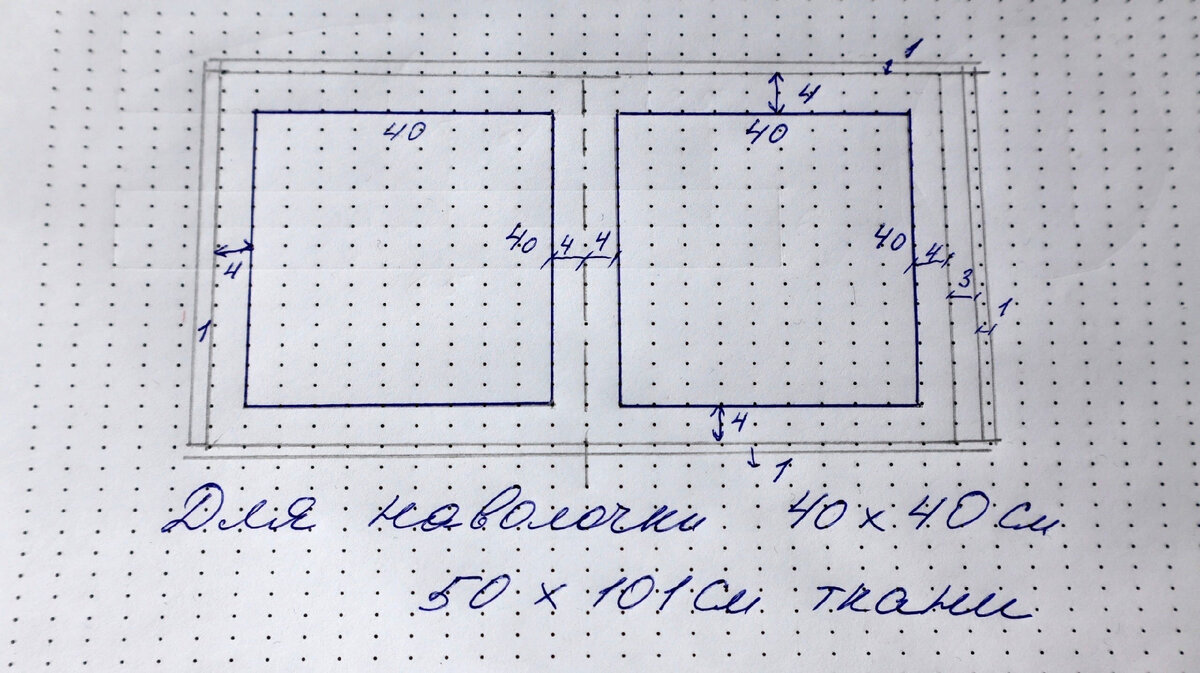 1
4
40
40
40
4
4
40
4
4
3
1
1
4
1
Для наволочки 40 x 40 см
50 x 101 см ткани